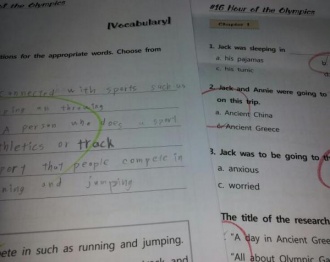 of the Olympics
[Vocabulary]
tions for the appropriate words. Choose from
connected with sports such as
throwing
A person who does a sport
athletics or track
port that people compete in
ning and jumping
ete in such as running and jumping.
#16 Hour of the Olympics
Chapter 1
1. Jack was sleeping in
a. his pajamas
c. his tunic
2. Jack and Annie were going to
on this trip.
a. Ancient China
c. Ancient Greece
3. Jack was to be going to th
a. anxious
c. worried
The title of the research
"A day in Ancient Gree
"All about Olympic Ga